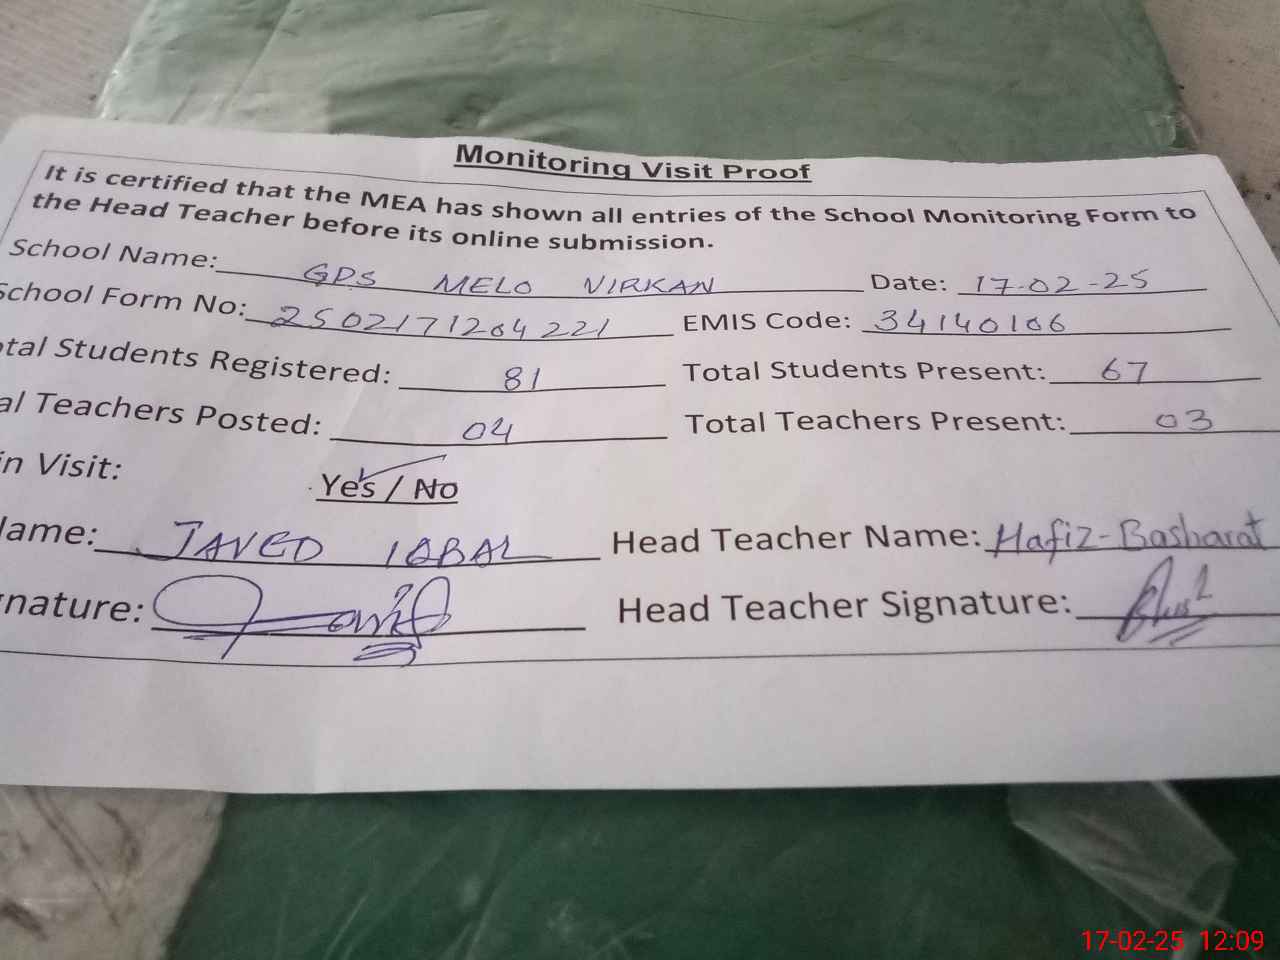 Monitoring Visit Proof
It is certified that the MEA has shown all entries of the School Monitoring Form to
the Head Teacher before its online submission.
School Name: GPS MELO VIRKAN Date: 17-02-25
School Form No: 2502171204221 EMIS Code: 34140106
otal Students Registered: 81 Total Students Present: 67
al Teachers Posted: 04 Total Teachers Present: 03
in Visit: Yes / No
Name: JAVED IQBAL Head Teacher Name: Hafiz-Basharat
gnature: Head Teacher Signature:
17-02-25 12:09